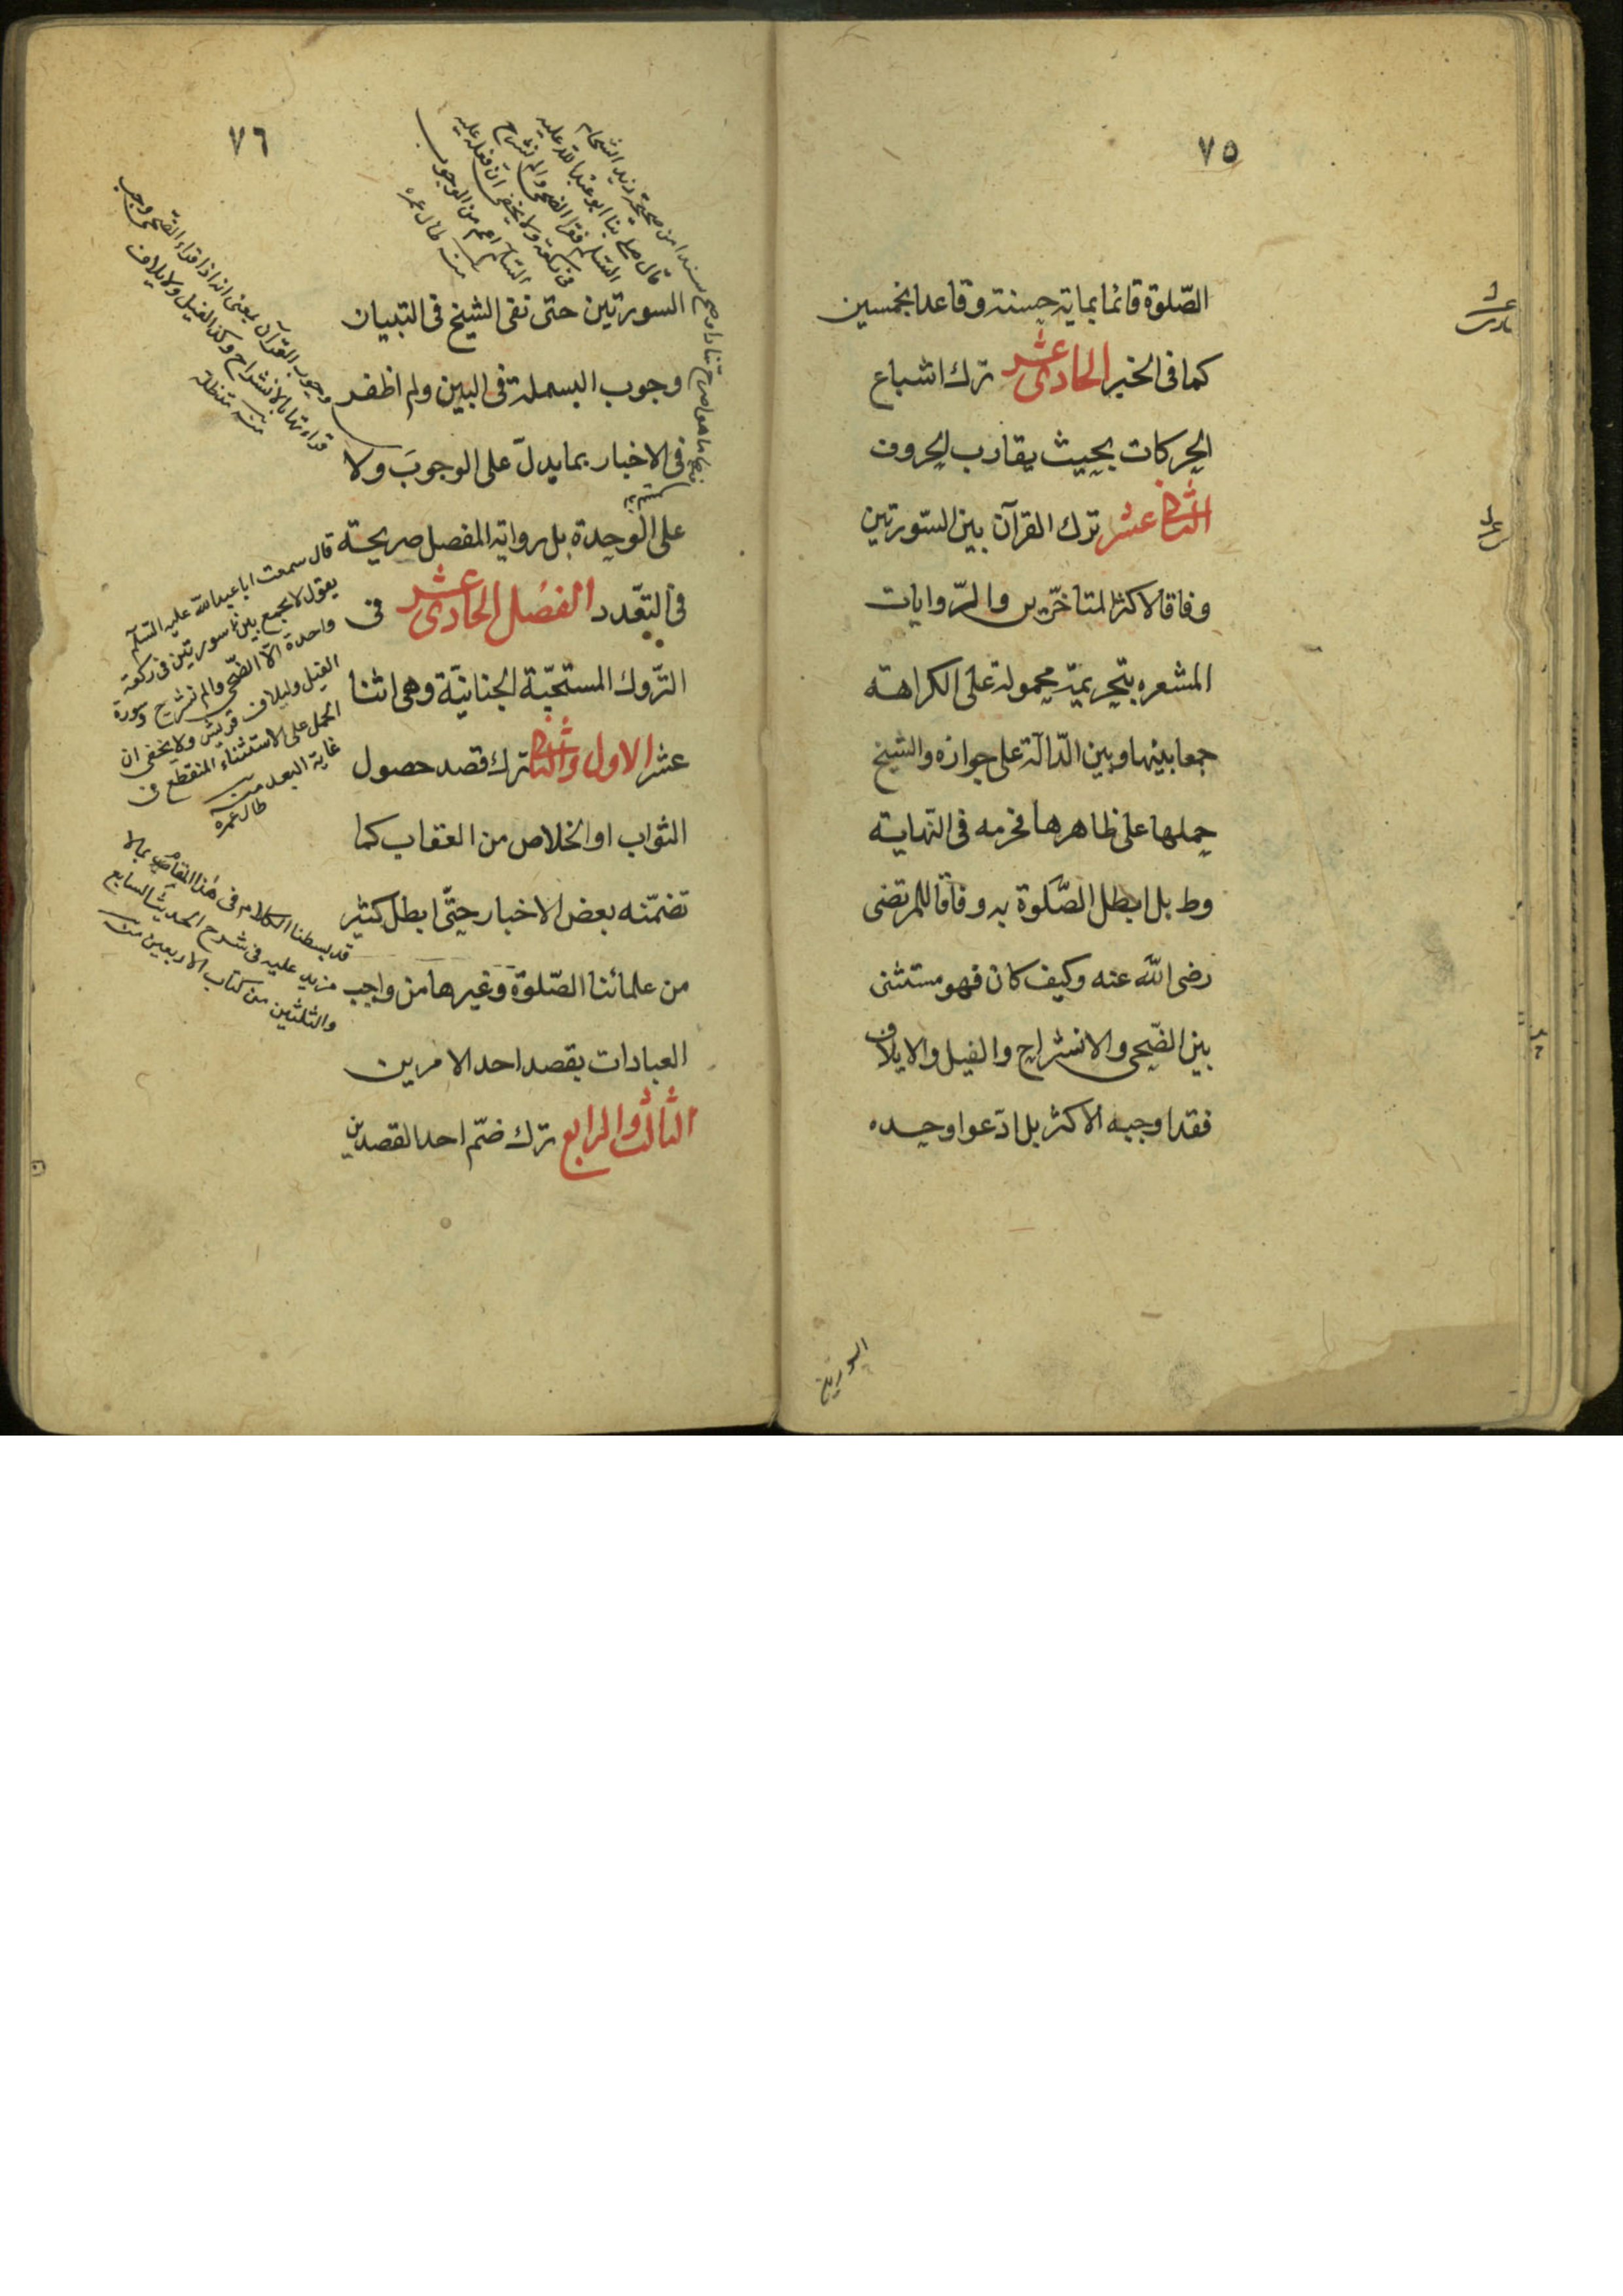 ٧٥
الصّلوة قائما بماية حسنة وقاعدا بخمسين
كما فى الخبر الحادى عشر ترك اشباع
الحركات بحيث يقارب الحروف
الثانى عشر ترك القرآن بين السّورتين
وفاقا لاكثر المتاخّرين والرّوايات
المشعره بتحريميّه محمولة على الكراهة
جمعا بينها وبين الدّالّة على جوازه والشيخ
حملها على ظاهرها فحرمه فى النهاية
وط بل ابطل الصّلوة به وفاقا للمرتضى
رضى اللّه عنه وكيف كان فهو مستثنى
بين الضّحى والانشراح والفيل والايلاف
فقد اوجبه الاكثر بل ادّعوا وحده
السورتين
٧٦
السورتين حتى نفى الشيخ فى التبيان
وجوب البسملة فى البين ولم اظفر
فى الاخبار بما يدلّ على الوجوب ولا
على الوحدة بل رواية المفضل صريحة
فى التعّدد الفصل الحادى عشر فى
التّروك المستحبّة الجنانيّة وهى اثنا
عشر الاول والثانى ترك قصد حصول
الثواب او الخلاص من العقاب كما
تضمّنه بعض الاخبار حتّى ابطل كثير
من علمائنا الصّلوة وغيرها من واجب
العبادات بقصد احد الامرين
الثالث والرابع ترك ضمّ احد القصدين
سندا من صحيحة زيد الشحام
قال صلى بنا ابو عبد اللّه عليه
السّلم فقرا الضحى والم نشرح
فى ركعة ولا يخفى ان فعله عليه
السّلم اعم من الوجوب
منه طال عمره
وجوب القرآن بمعنى انه اذا قراء الضّحى وجب
قراءتها بالانشراح وكذا الفيل ولايلاف
منه مدّ ظله
قال سمعت ابا عبد اللّه عليه السّلم
يقول لا يجمع بين سورتين فى ركعة
واحدة الّا الضّحى والم نشرح وسورة
الفيل ولايلاف قريش ولا يخفى ان
الحمل على الاستثناء المنقطع فى
غاية البعد منه
طال عمره
قد بسطنا الكلام فى هذا المقام بما لا
مزيد عليه فى شرح الحديث السابع
والثلثين من كتاب الاربعين منه